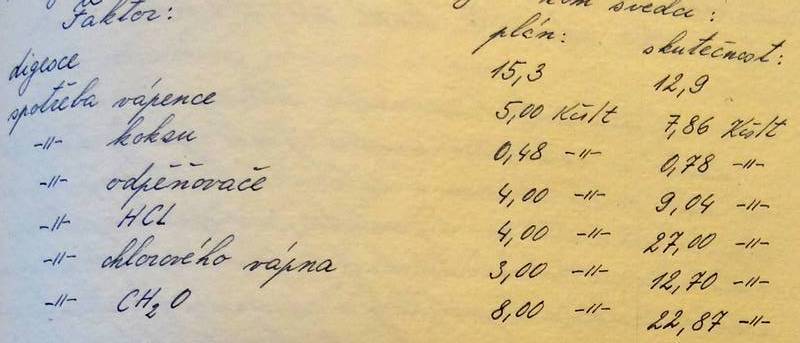 Faktor: plán: skutečnost:
digesce 15,3 12,9
spotřeba vápence 5,00 Kčs/t 7,86 Kčs/t
-"- koksu 0,48 -"- 0,78 -"-
-"- odpěňovače 4,00 -"- 9,04 -"-
-"- HCl 4,00 -"- 27,00 -"-
-"- chlorového vápna 3,00 -"- 12,70 -"-
-"- CH₂O 8,00 -"- 22,87 -"-